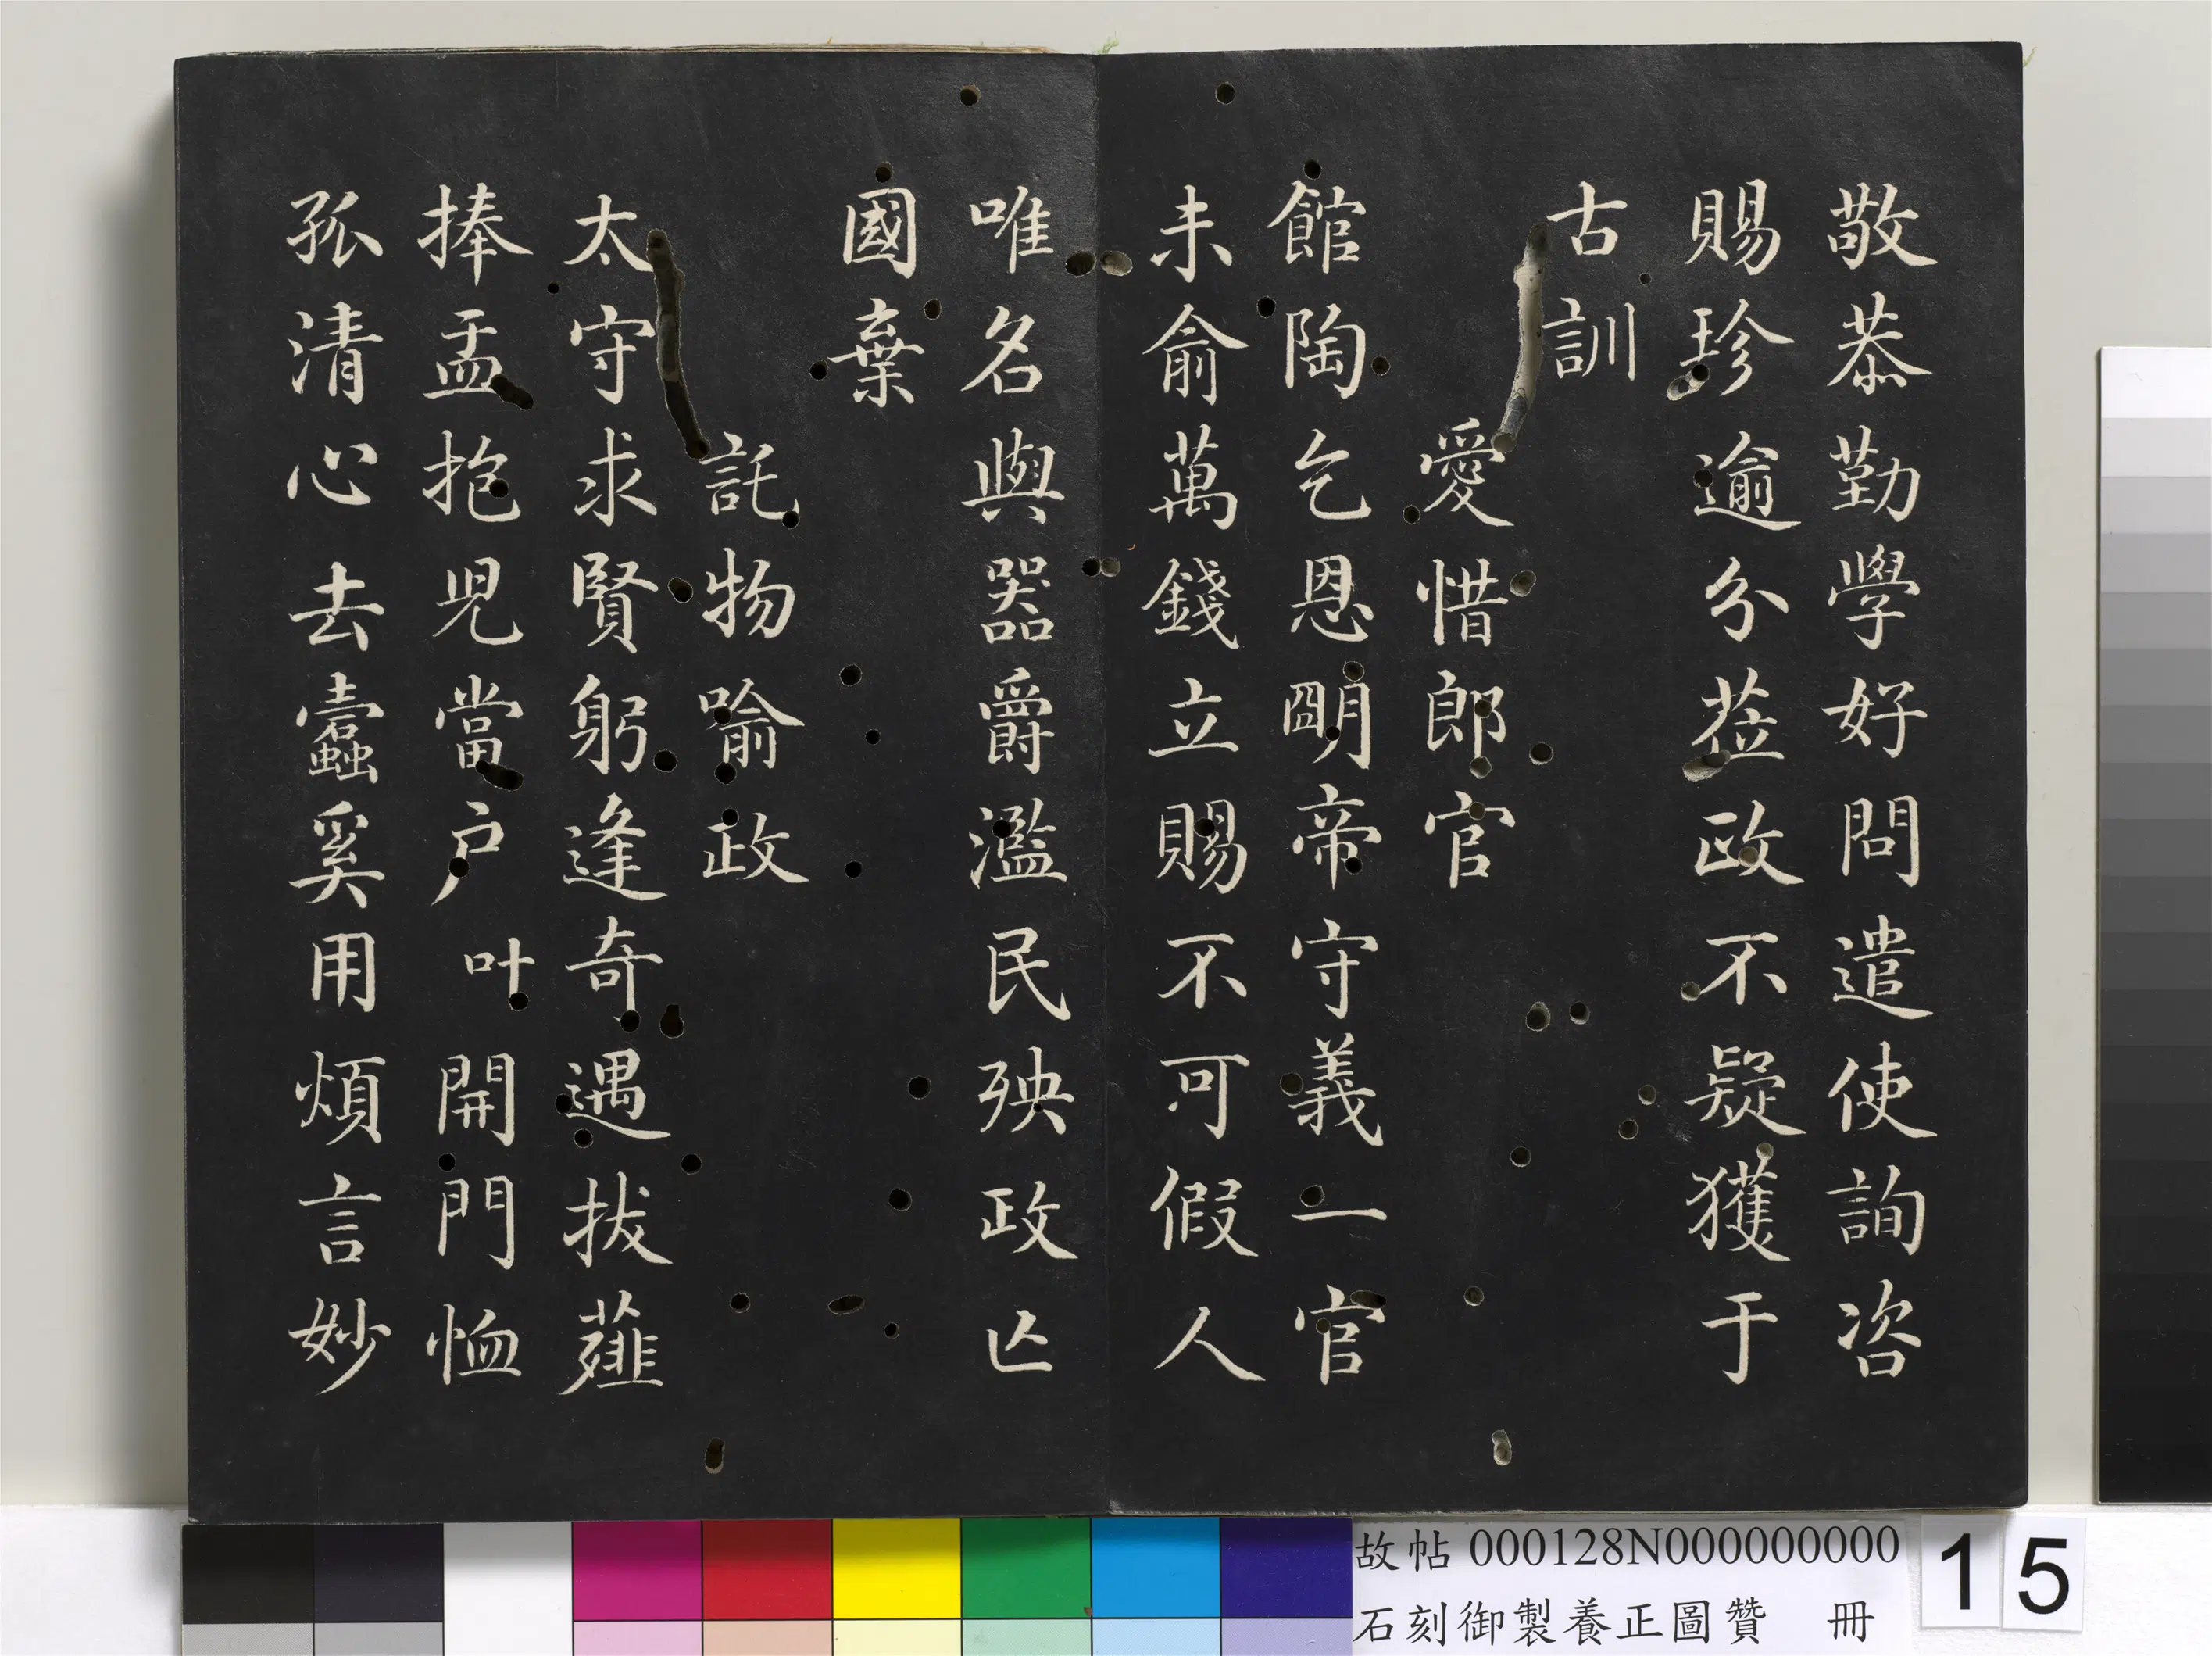 敬恭勤學好問遣使詢咨
賜珍逾分蒞政不疑獲于
古訓
愛惜郎官
館陶乞恩朙帝守義一官
未俞萬錢立賜不可假人
唯名與器爵濫民殃政亾
國棄
託物喻政
太守求賢躬逢奇遇拔薤
捧盂抱児當户叶開門恤
孤清心去蠹奚用煩言妙
故帖000128N000000000
石刻御製養正圖贊 冊
15